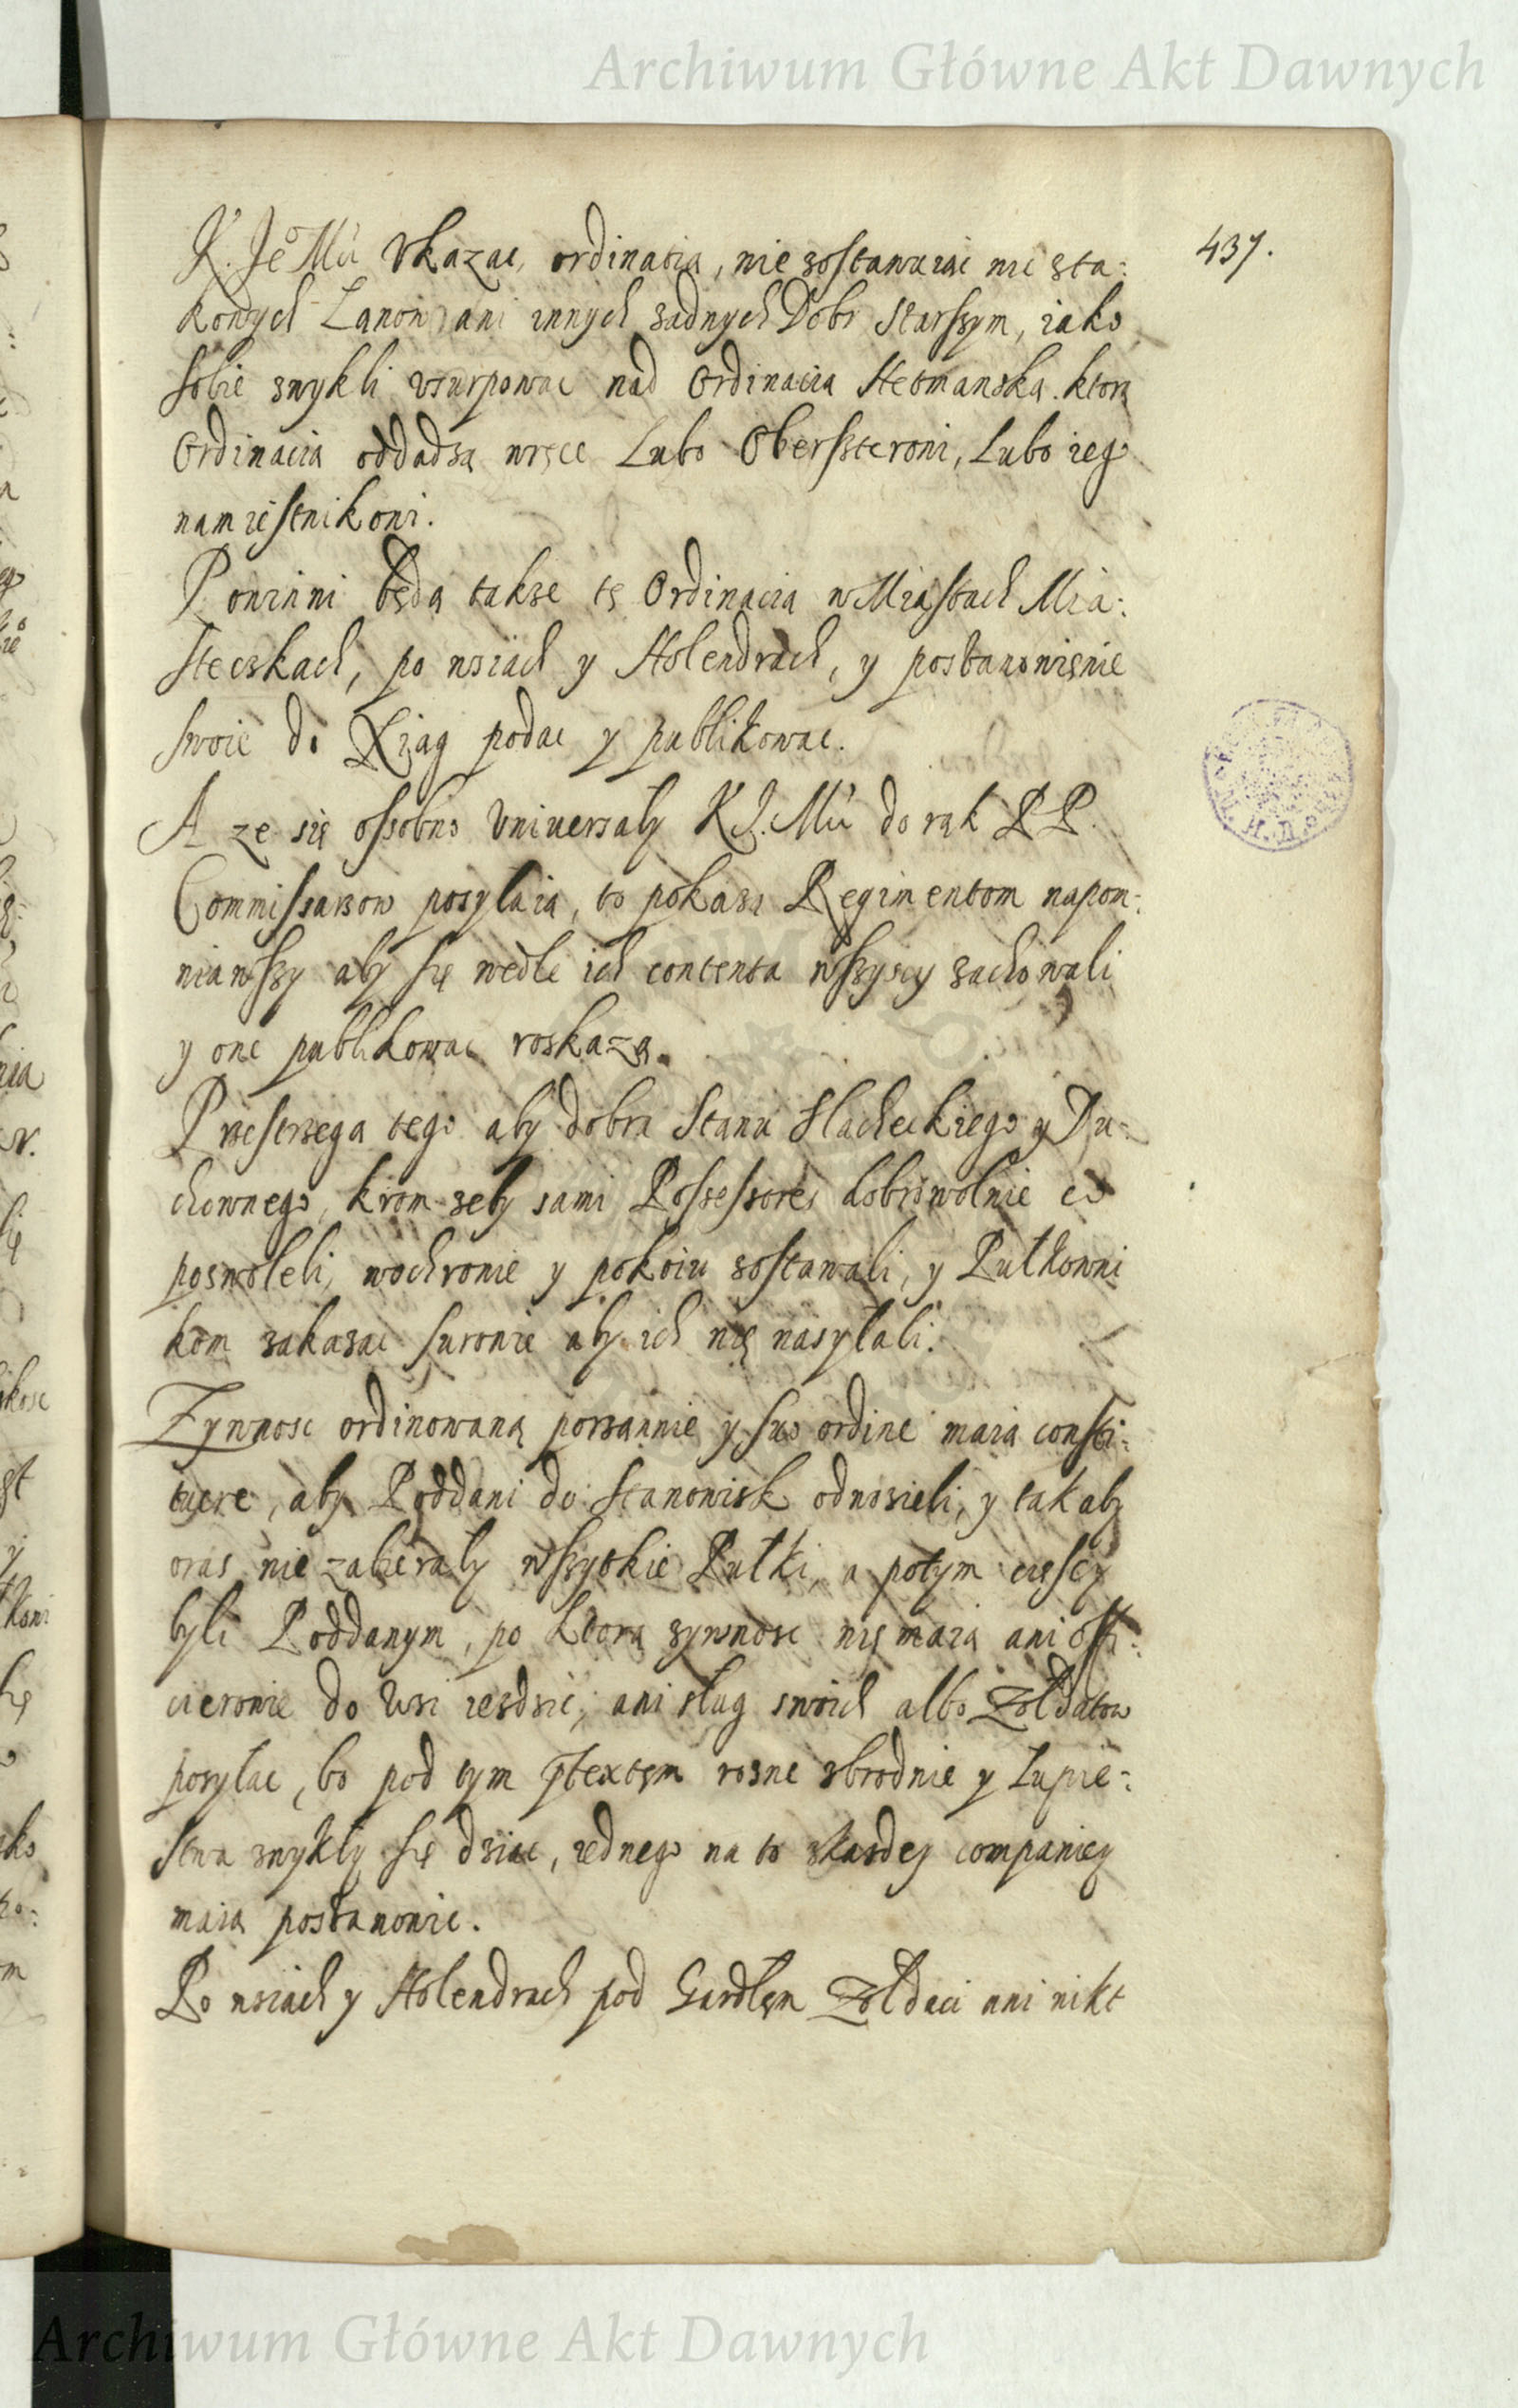 Archiwum Główne Akt Dawnych
437.
K. Je° Mći Vkazac, ordinatią, nie zostawuiąc nic z ta:
kowych Lanow ani innych zadnych Dobr Starszym, iako
sobie zwykli vsurpowac nad Ordinacią Hetmanską. ktorą
Ordinacią oddadzą wręce Lubo Oberszterowi, Lubo ie°
namiestnikowi.
Powinni będą takze tę Ordinacią w Miastach Mia:
steczkach, po wsiach y Holendrach, y postanowięnie
swoie do Xiąg podac y publikowac.
A ze się ossobno Vniuersały K J. Mći do rąk PP.
Commissarzow posyłaią, to pokazą Regimentom napom:
niawszy aby się wedle ich contenta wszyscy zachowali
y one publikowac roskazą.
Przestrzega tego aby dobra Stanu Slacheckiego y Du:
chownego, krom zeby sami Possessores dobrowolnie co
pozwoleli, wochronie y pokoiu zostawali, y Pułkowni
kom zakazac surowie aby ich nię nasyłali.
Zywnosc ordinowaną porządnie y suo ordine maią consti:
tuere, aby Poddani do Stanowisk odnosieli, y tak aby
oraz nie zabierały wszytkie Pułki, a potym cięscy
byli Poddanym, po ktorą zywnosc nię maią ani offi:
cierowie do Wsi iezdzic, ani sług swoich albo Zołdatow
posyłac, bo pod tym ptextęm rozne zbrodnie y Łupie:
stwa zwykły się dziac, iednego na to zkazdey companiey
maią postanowic.
Po wsiach y Holendrach pod Gardłęm Zołdaci ani nikt
Archiwum Główne Akt Dawnych